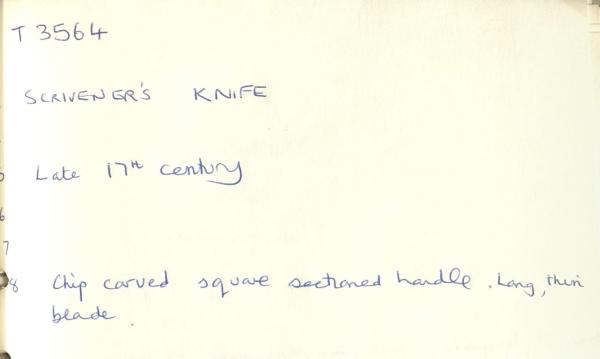 T 3564
SCRIVENER'S KNIFE
5 Late 17th century
6
7
8 Chip carved square sectioned handle. Long, thin
blade.